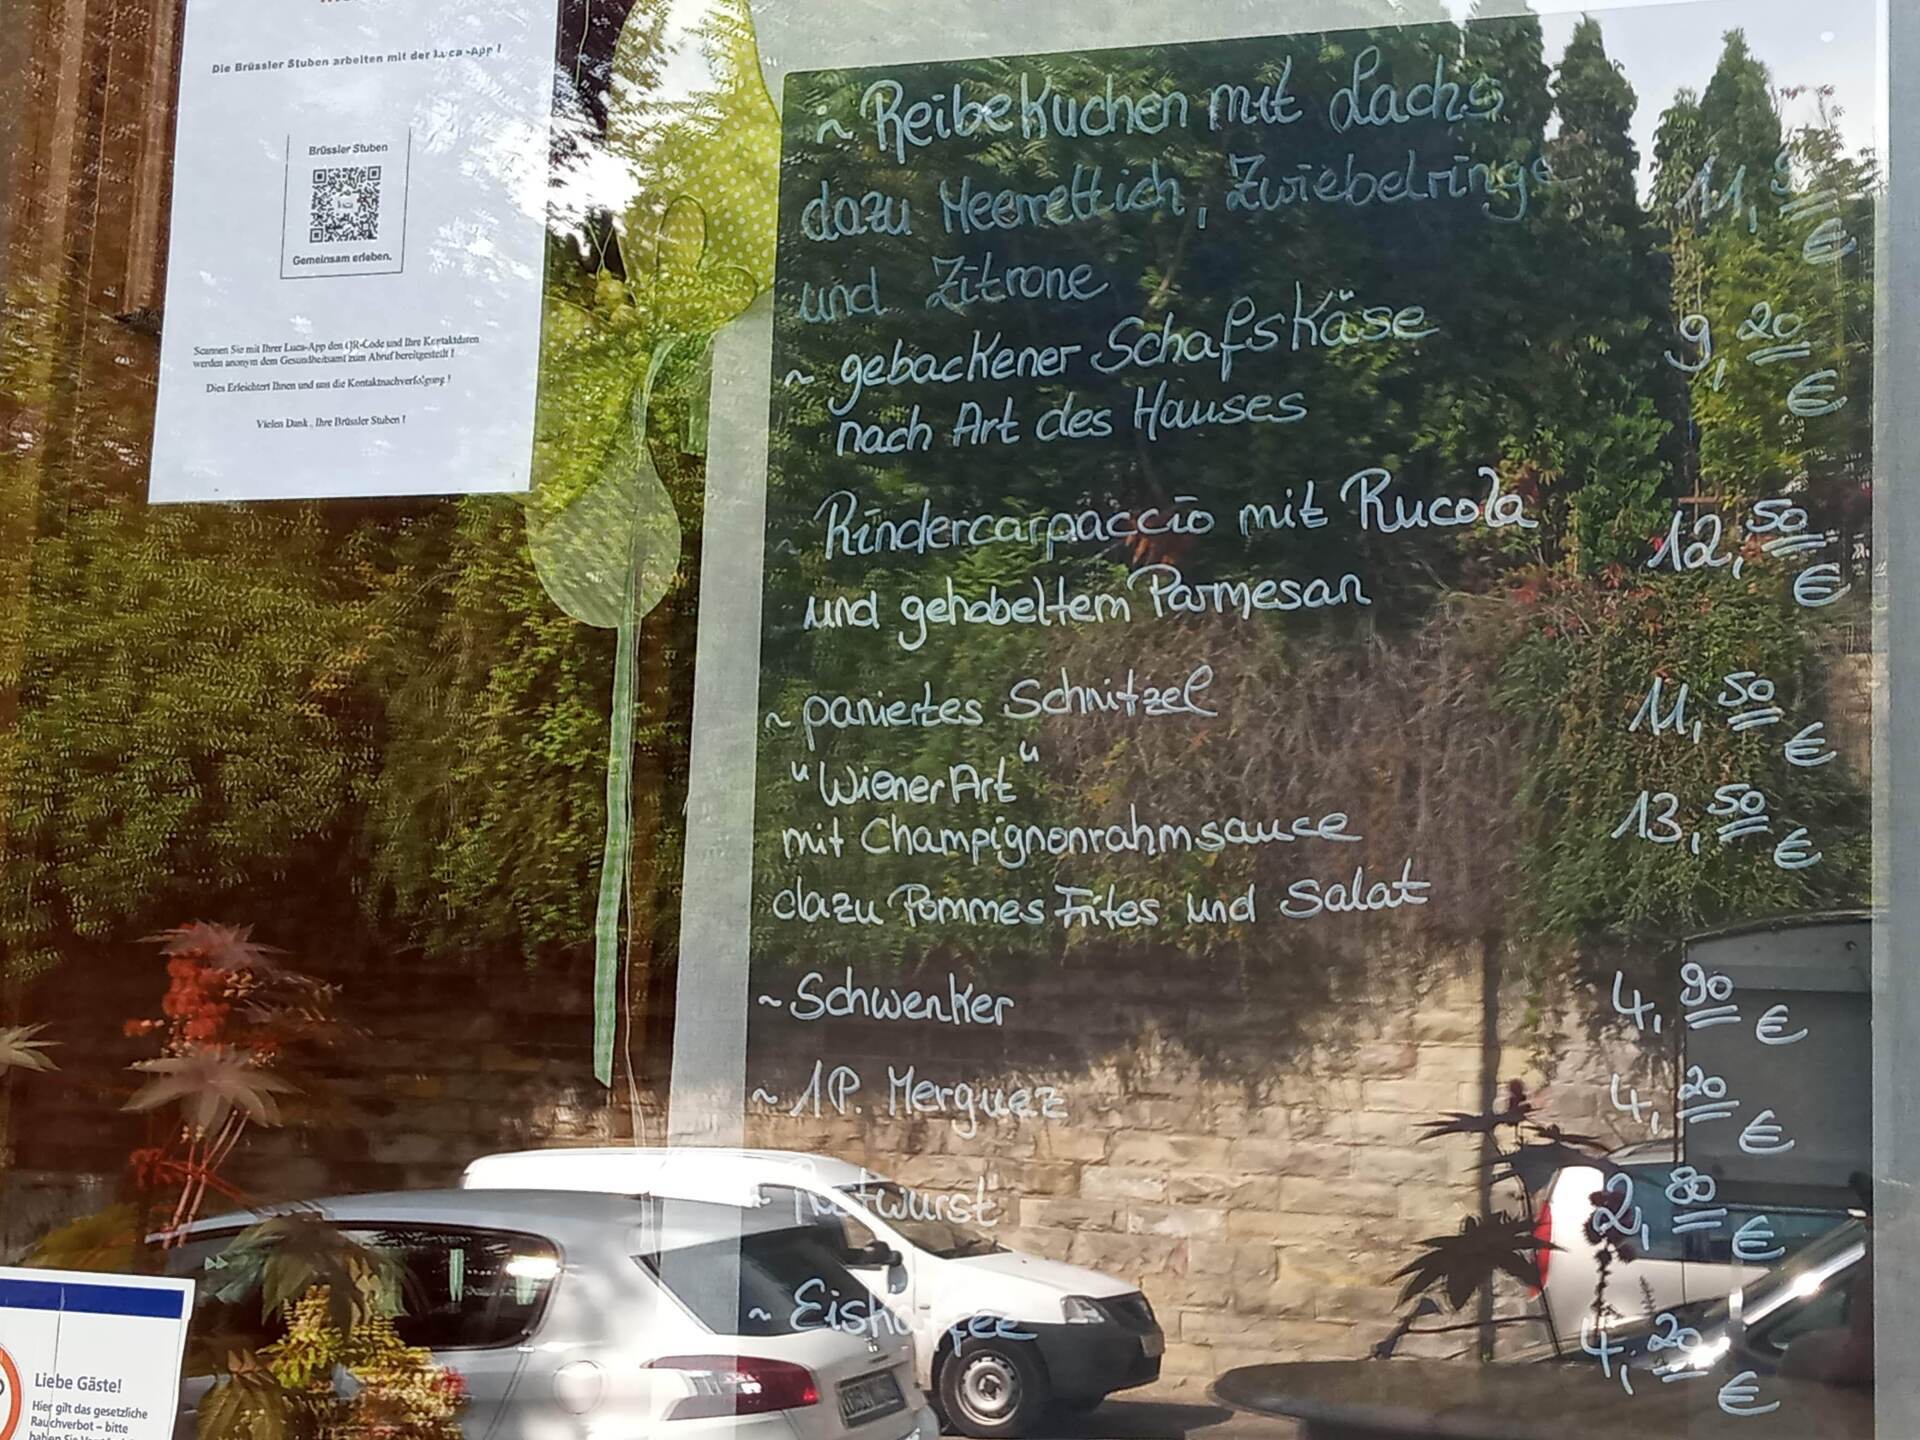 Die Brüssler Stuben arbeiten mit der Luca-App !
Brüssler Stuben
Gemeinsam erleben.
Scannen Sie mit Ihrer Luca-App den QR-Code und Ihre Kontaktdaten
werden anonym dem Gesundheitsamt zum Abruf bereitgestellt !
Dies Erleichtert Ihnen und uns die Kontaktnachverfolgung !
Vielen Dank , Ihre Brüssler Stuben !
~ Reibekuchen mit Lachs
dazu Meerrettich, Zwiebelringe 11, €
und Zitrone
~ gebackener Schafskäse 9,20 €
nach Art des Hauses
~ Rindercarpaccio mit Rucola 12,50 €
und gehobeltem Parmesan
~ paniertes Schnitzel 11,50 €
"Wiener Art"
mit Champignonrahmsauce 13,50 €
dazu Pommes Frites und Salat
~ Schwenker 4,90 €
~ 1P. Merguez 4,20 €
~ Rostwurst 2,80 €
~ Eiskaffee 4,20 €
Liebe Gäste!
Hier gilt das gesetzliche
Rauchverbot – bitte
haben Sie